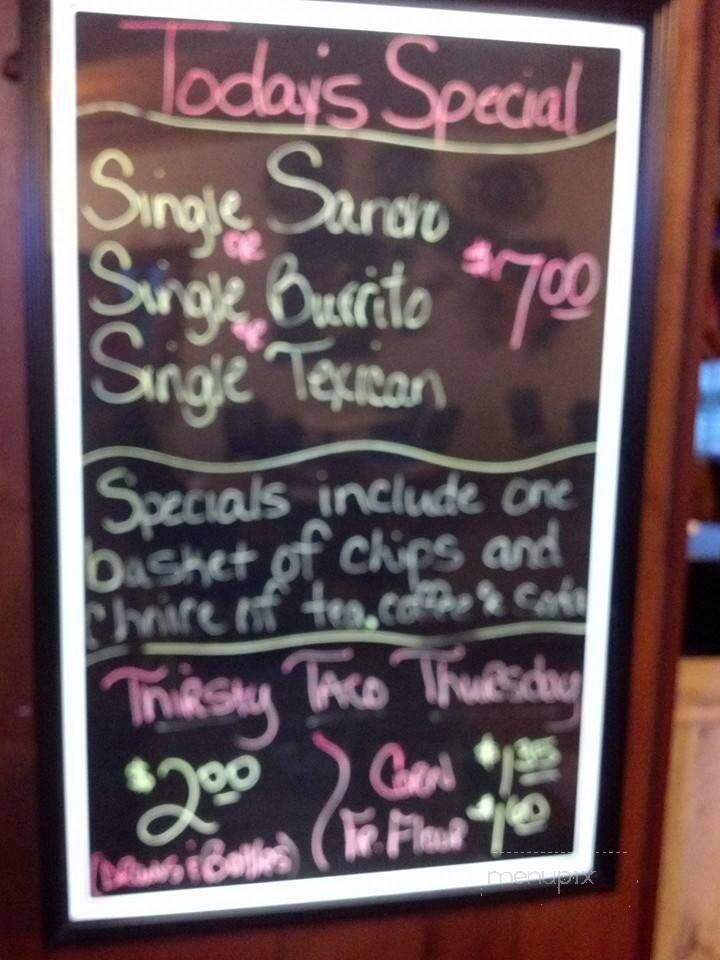 Today's Special
Single Sancho
or
Single Burrito $7.00
or
Single Texican
Specials include one
basket of chips and
choice of tea, coffee & soda
Thirsty Taco Thursday
$2.00 Corn $1.35
(Draws & Bottles) Fr. Flour
menupix